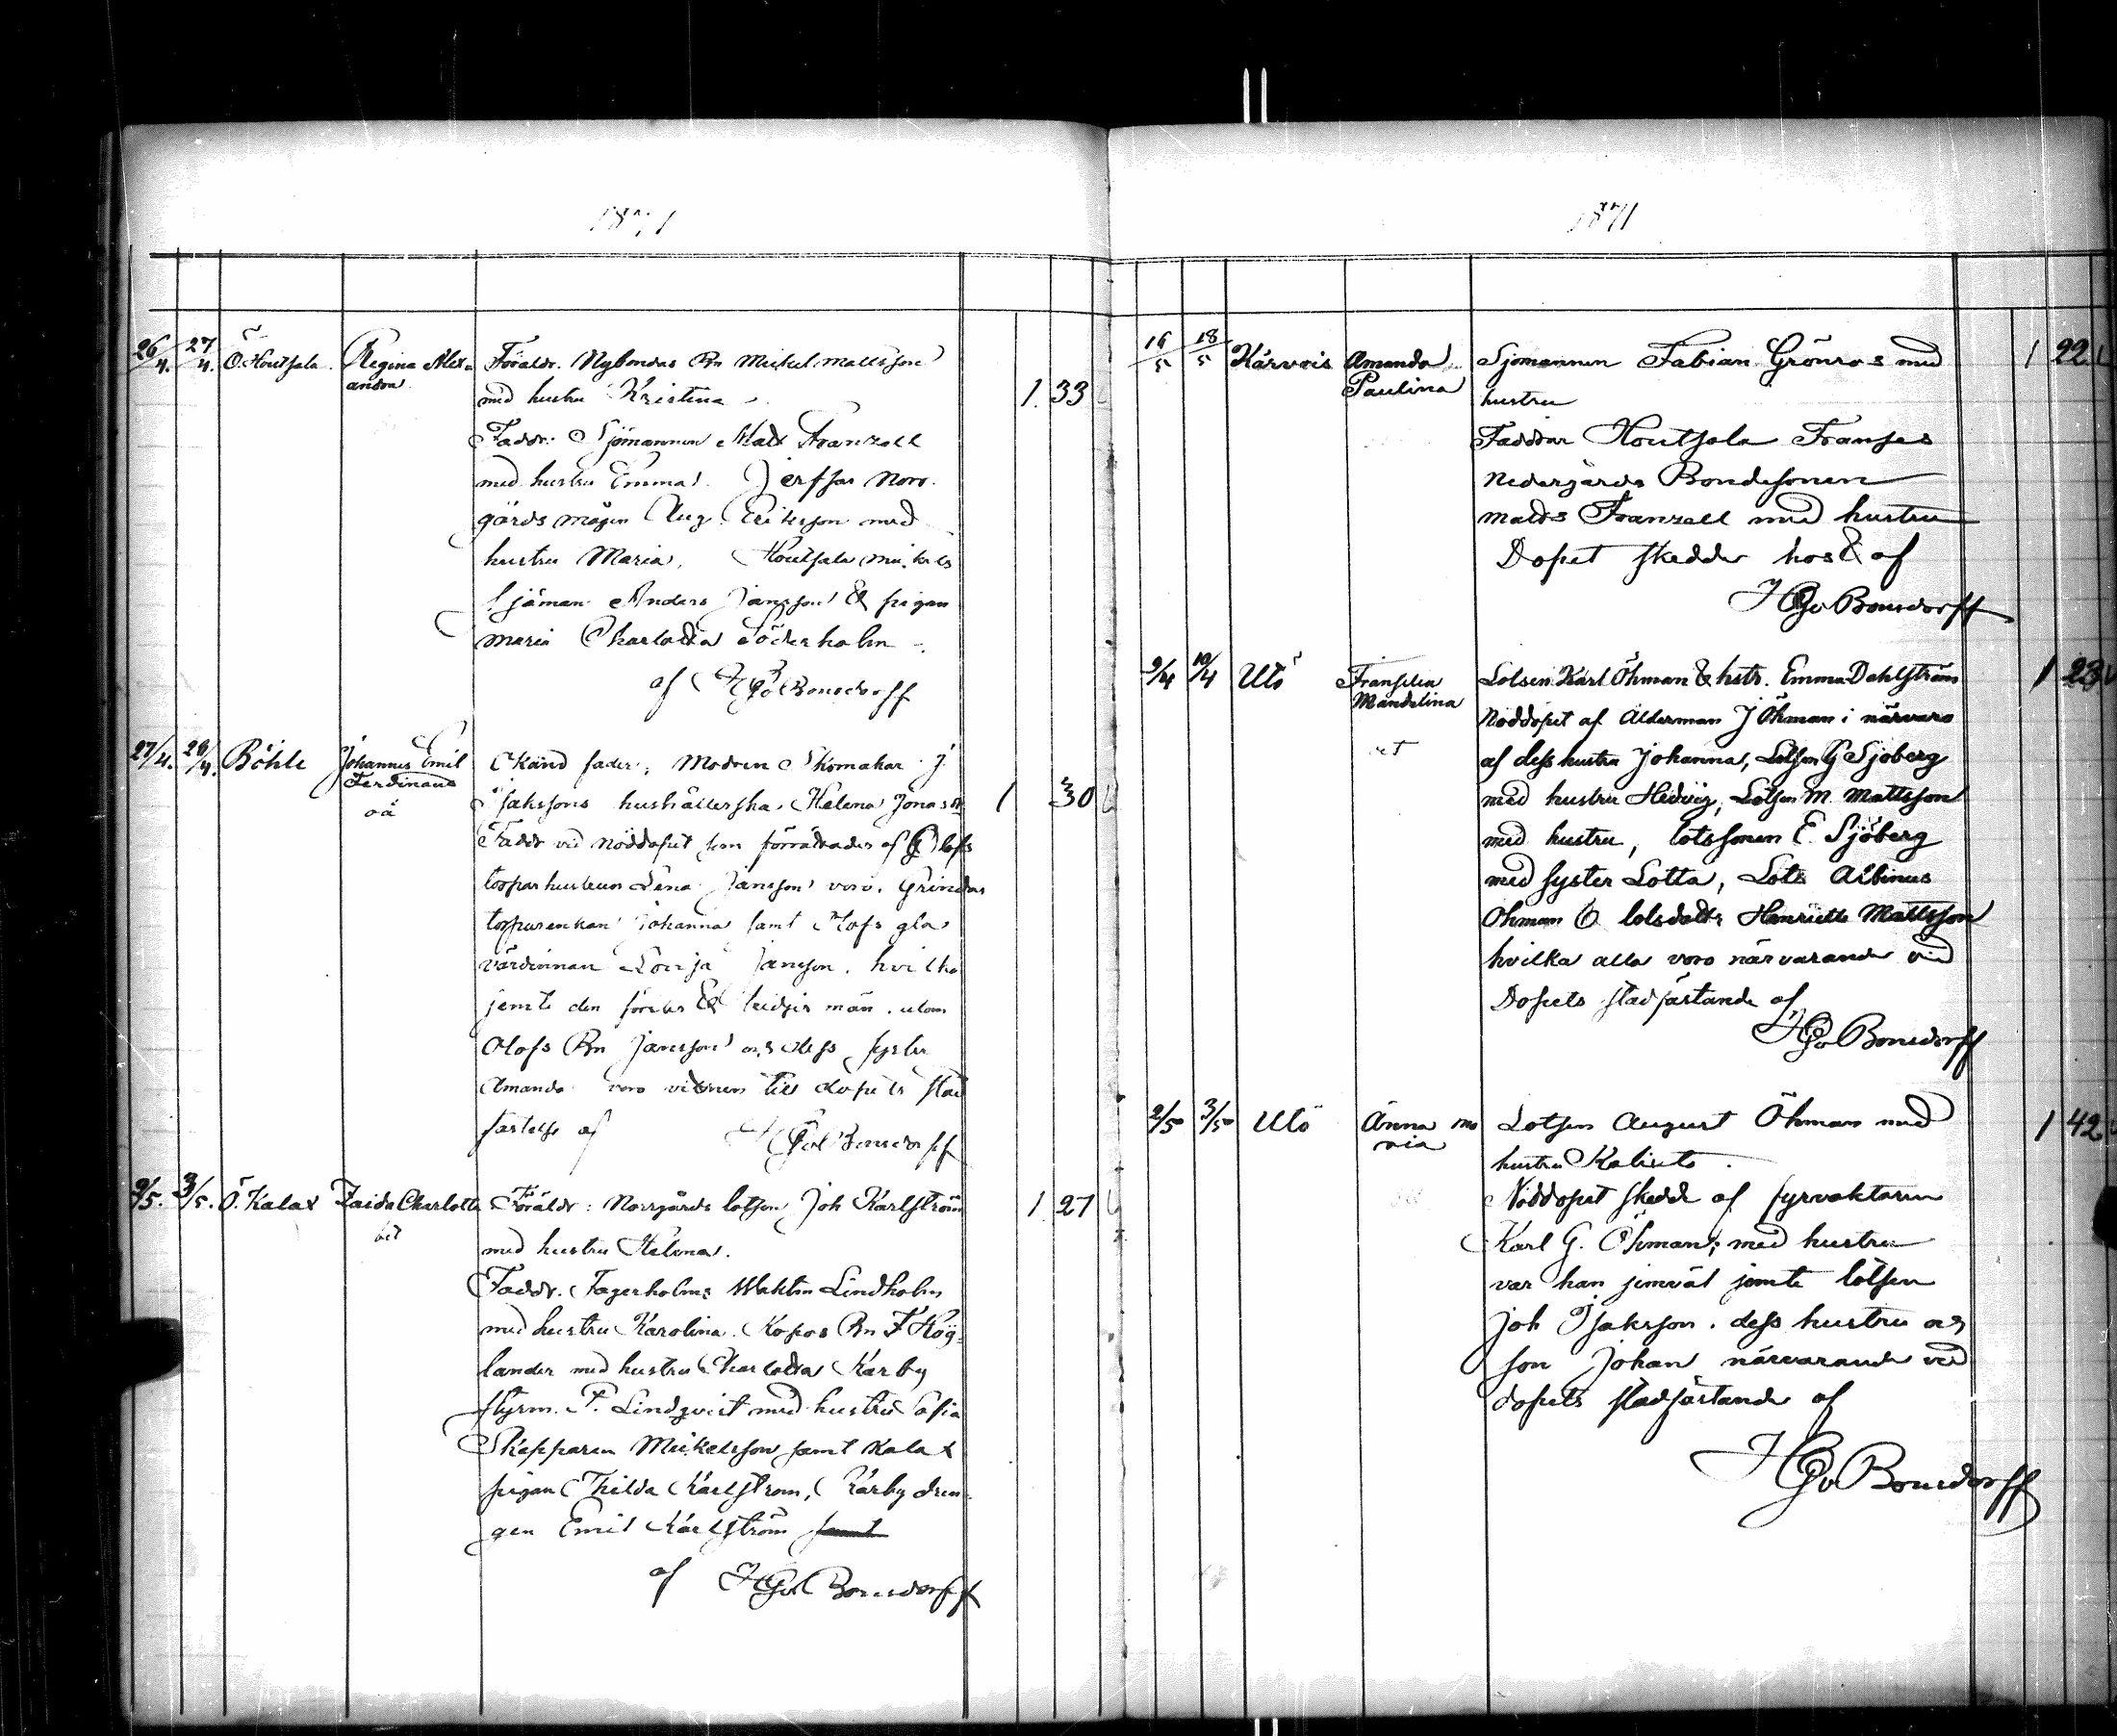 1871
26/4. 27/4. Ö. Houtsala. Regina Alex- Föräldr. Nybondas Bn Mickel Mattsson
andra med hustru Kristina 1. 33
Faddr: Sjömannen Mats Franzell
med hustru Emma. Jerfsar Norr-
gårds mågen Aug. Eriksson med
hustru Maria. Houtsala Mickels
sjöman Anders Jansson & pigan
Maria Charlotta Söderholm
af HGvBonsdorff
27/4. 28/4. Böhle Johannes Emil Okänd fader; Modren Skomakar J
Ferdinand Isakssons hushållerska Helena Jonass 1 30
oä Faddr vid nöddopet som förrättades af Olofs
torparhustrun Lena Jansson voro. Grindas
torparenkan Johanna samt Olofs gla
värdinnan Lovisa Jansson. hvilka
jemte den förres & tredjes män. utom
Olofs Bn Jansson och dess syster
Amanda voro vittnen till dopets stad
fästelse af HGvBonsdorff
2/5. 3/5. Ö. Kalax Zaida Charlotta Föräldr: Norrgårds lotsen Joh Karlström 1. 27
med hustru Helena.
Faddr. Fagerholms Lindholm
med hustru Karolina. Kopos Bn F Hög-
lander med hustru Charlotta Kärby
styrm. P. Lindqvist med hustru Sofia
Skepparen Mickelsson samt Kalax
pigan Thilda Karlström, Kärby drän-
gen Emil Karlström samt
af HGvBonsdorff
1871
16/5 18/5 Härvois Amanda Sjömannen Fabian Grönros med 1 22
Paulina hustru
Faddrar Houtsala Franses
Nedergårds Bondesonen
Matts Franzell med hustru
Dopet skedde hos & af
HGvBonsdorff
9/4 10/4 Utö Fransilia Lotsen Karl Öhman & hstr. Emma Dahlström 1 23
Mandelina Nöddopet af Ålderman J Öhman i närvaro
af dess hustru Johanna, Lotsen G Sjöberg
med hustru Hedvig, Lotsen M. Mattsson
med hustru, lotssonen E. Sjöberg
med syster Lotta, Lots Albinus
Öhman & lotsdottr Henriette Mattsson
hvilka alla voro närvarande vid
Dopets stadfästande af
HGvBonsdorff
2/5 3/5 Utö Anna Ma Lotsen August Öhman med 1 42
ria hustru
Nöddopet skedde af fyrvaktaren
Karl G. Öhman; med hustru
var han jemväl jemte lotsen
Joh Isaksson. dess hustru och
son Johan närvarande vid
dopets stadfästande af
HGvBonsdorff